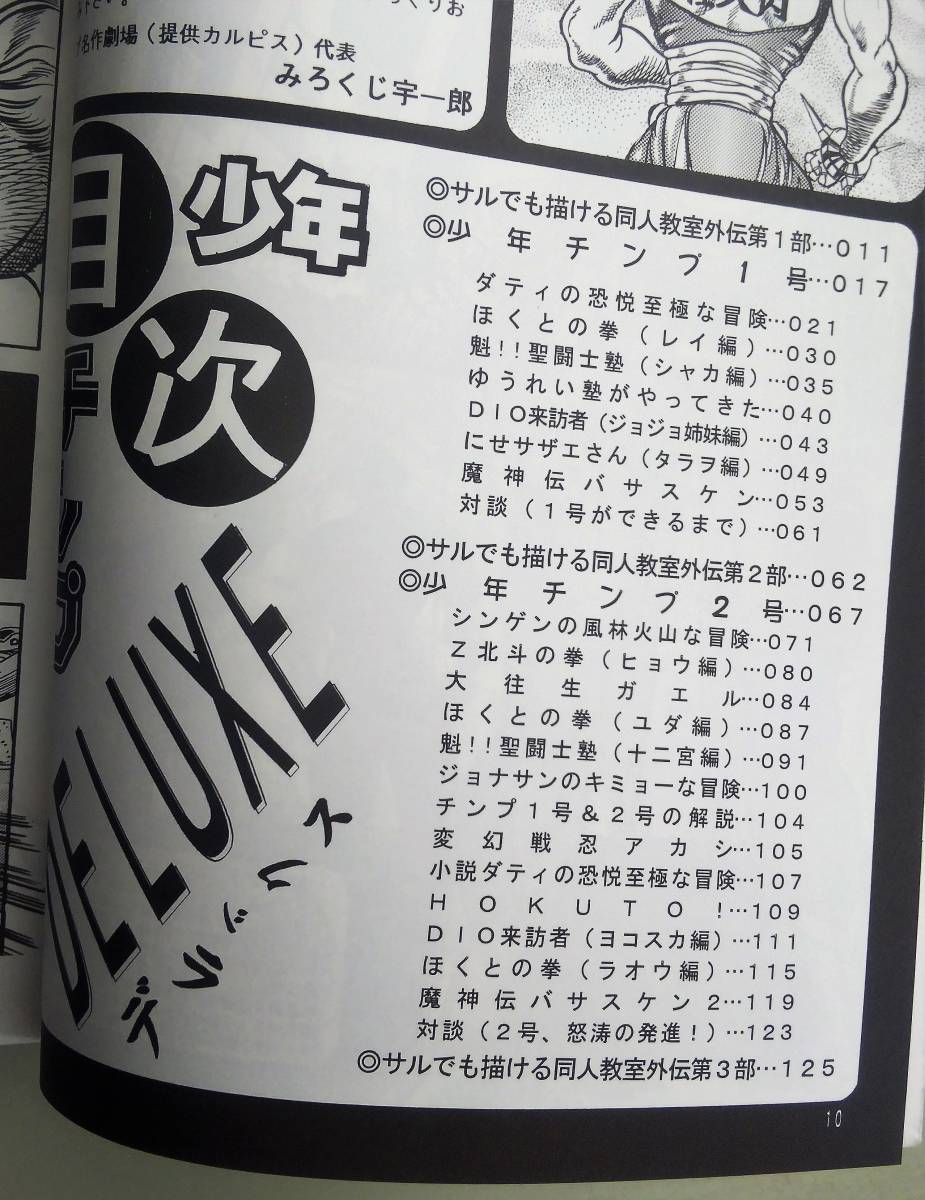 下さい。
くりお
名作劇場(提供カルピス)代表
みろくじ宇一郎
目次
少年
チンプ
DELUXE
デラックス
◎サルでも描ける同人教室外伝第1部…011
◎少年チンプ1号…017
ダティの恐悦至極な冒険…021
ほくとの拳(レイ編)…030
魁!!聖闘士塾(シャカ編)…035
ゆうれい塾がやってきた…040
DIO来訪者(ジョジョ姉妹編)…043
にせサザエさん(タラヲ編)…049
魔神伝バサスケン…053
対談(1号ができるまで)…061
◎サルでも描ける同人教室外伝第2部…062
◎少年チンプ2号…067
シンゲンの風林火山な冒険…071
Z北斗の拳(ヒョウ編)…080
大往生ガエル…084
ほくとの拳(ユダ編)…087
魁!!聖闘士塾(十二宮編)…091
ジョナサンのキミョーな冒険…100
チンプ1号&2号の解説…104
変幻戦忍アカシ…105
小説ダティの恐悦至極な冒険…107
HOKUTO!…109
DIO来訪者(ヨコスカ編)…111
ほくとの拳(ラオウ編)…115
魔神伝バサスケン2…119
対談(2号、怒涛の発進!)…123
◎サルでも描ける同人教室外伝第3部…125
10